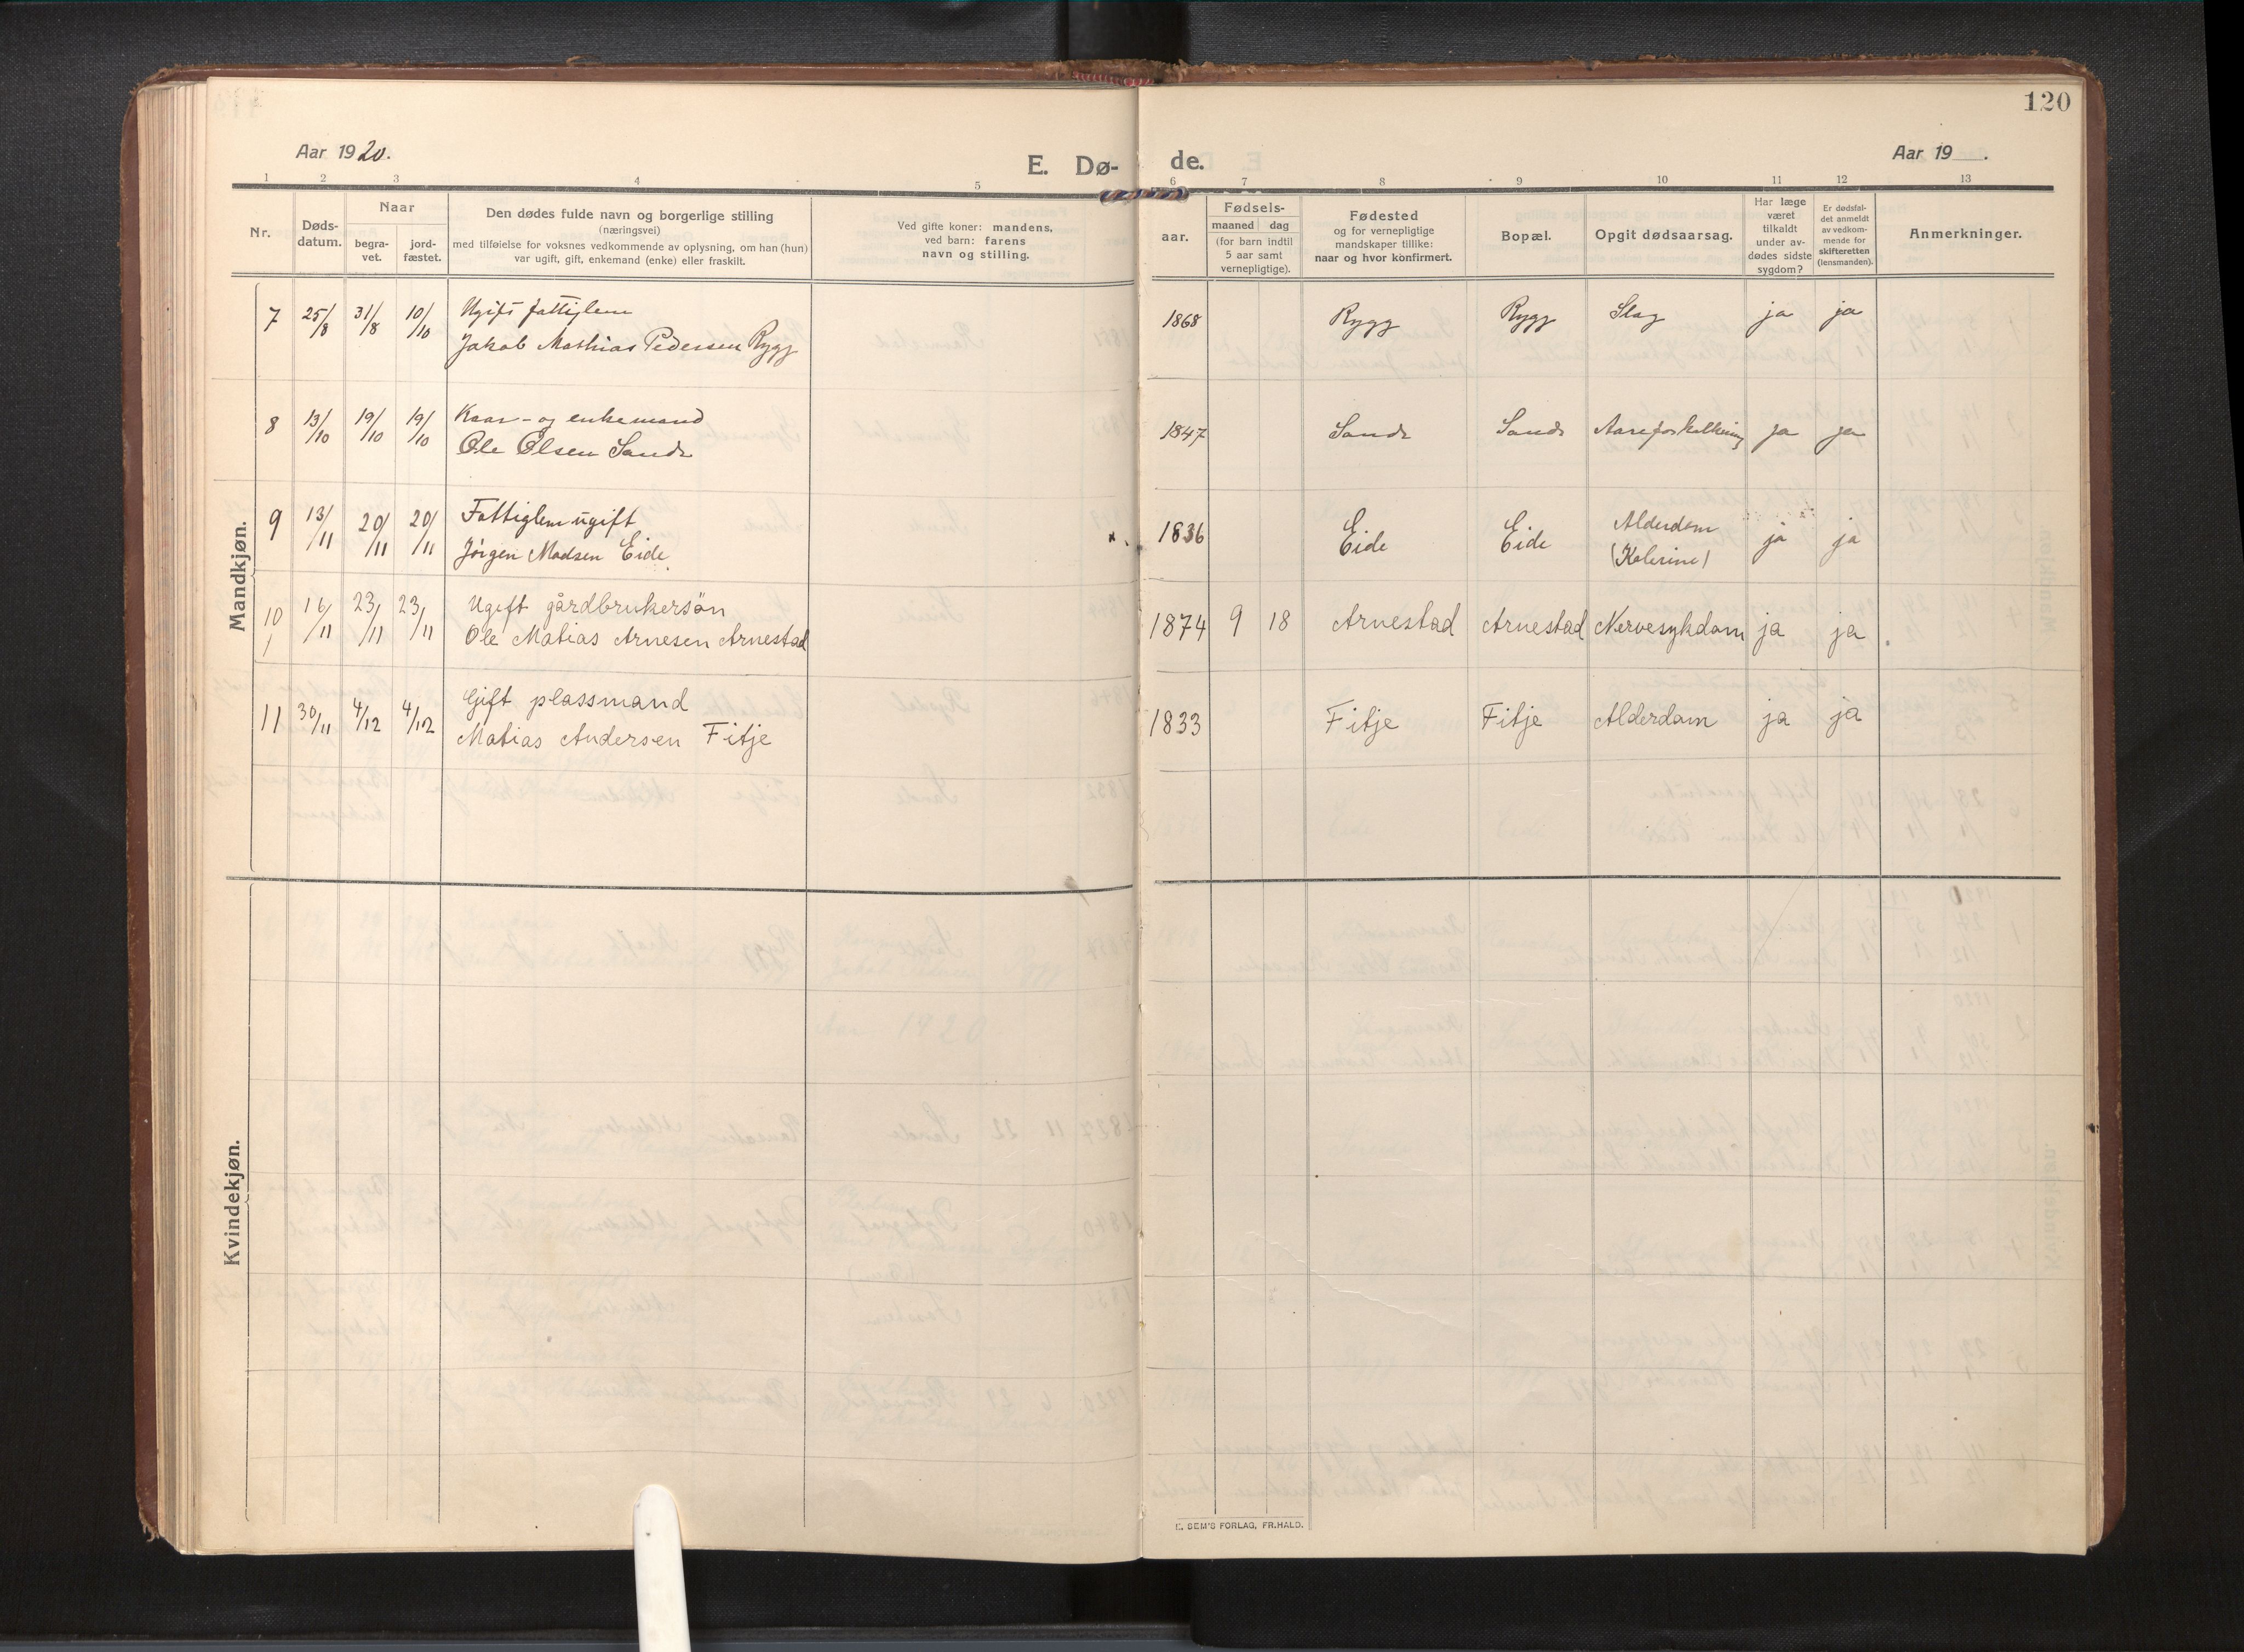 120
Aar 1920.
E. Dø-
de.
Aar 19 .
1 2 3 4 5 6 7 8 9 10 11 12 13
Nr.
Døds-
datum.
Naar
begra-
vet.
jord-
fæstet.
Den dødes fulde navn og borgerlige stilling
(næringsvei)
med tilføielse for voksnes vedkommende av oplysning, om han (hun)
var ugift, gift, enkemand (enke) eller fraskilt.
Ved gifte koner: mandens,
ved barn: farens
navn og stilling.
aar.
Fødsels-
maaned dag
(for barn indtil
5 aar samt
vernepligtige).
Fødested
og for vernepligtige
mandskaper tillike:
naar og hvor konfirmert.
Bopæl.
Opgit dødsaarsag.
Har læge
været
tilkaldt
under av-
dødes sidste
sygdom?
Er dødsfal-
det anmeldt
av vedkom-
mende for
skifteretten
(lensmanden).
Anmerkninger.
Mandkjøn.
7 25/8 31/8 10/10 Ugift fattiglem
Jakob Mathias Pedersen Rygg 1868 Rygg Rygg Slag ja ja
8 13/10 19/10 19/10 Kaar- og enkemand
Ole Olsen Sande 1847 Sande Sande Aareforkalkning ja ja
9 13/11 20/11 20/11 Fattiglem ugift
Jörgen Madsen Eide 1836 Eide Eide Alderdom ja ja
10 16/11 23/11 23/11 Ugift gårdbrukersön
Ole Matias Arnesen Arnestad 1874 9 18 Arnestad Arnestad Nervesykdom ja ja
11 30/11 4/12 4/12 Gift plassmand
Matias Andersen Fitje 1833 Fitje Fitje Alderdom ja ja
Kvindekjøn.
E. SEM'S FORLAG, FR.HALD.